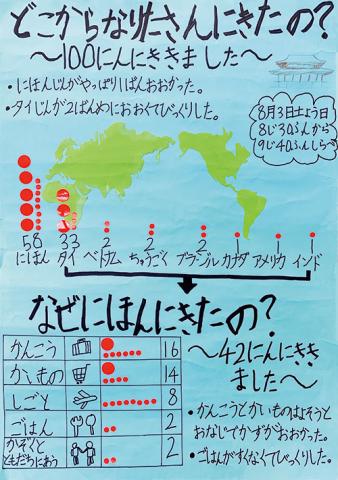 どこからなりたさんにきたの?
〜100にんにききました〜
・にほんじんがやっぱり1ばんおおかった。
・タイじんが2ばんめにおおくてびっくりした。
8月3日土よう日
8じ30ぷんから
9じ40ぷんしらべ
58 33 2 2 2 1 1 1
にほん タイ ベトナム ちゅうごく ブラジル カナダ アメリカ インド
なぜにほんにきたの?
かんこう 16
かいもの 14
しごと 8
ごはん 2
かぞくと
ともだちにあう 2
〜42にんにきき
ました〜
・かんこうとかいものはよそうと
おなじでかずがおおかった。
・ごはんがすくなくてびっくりした。